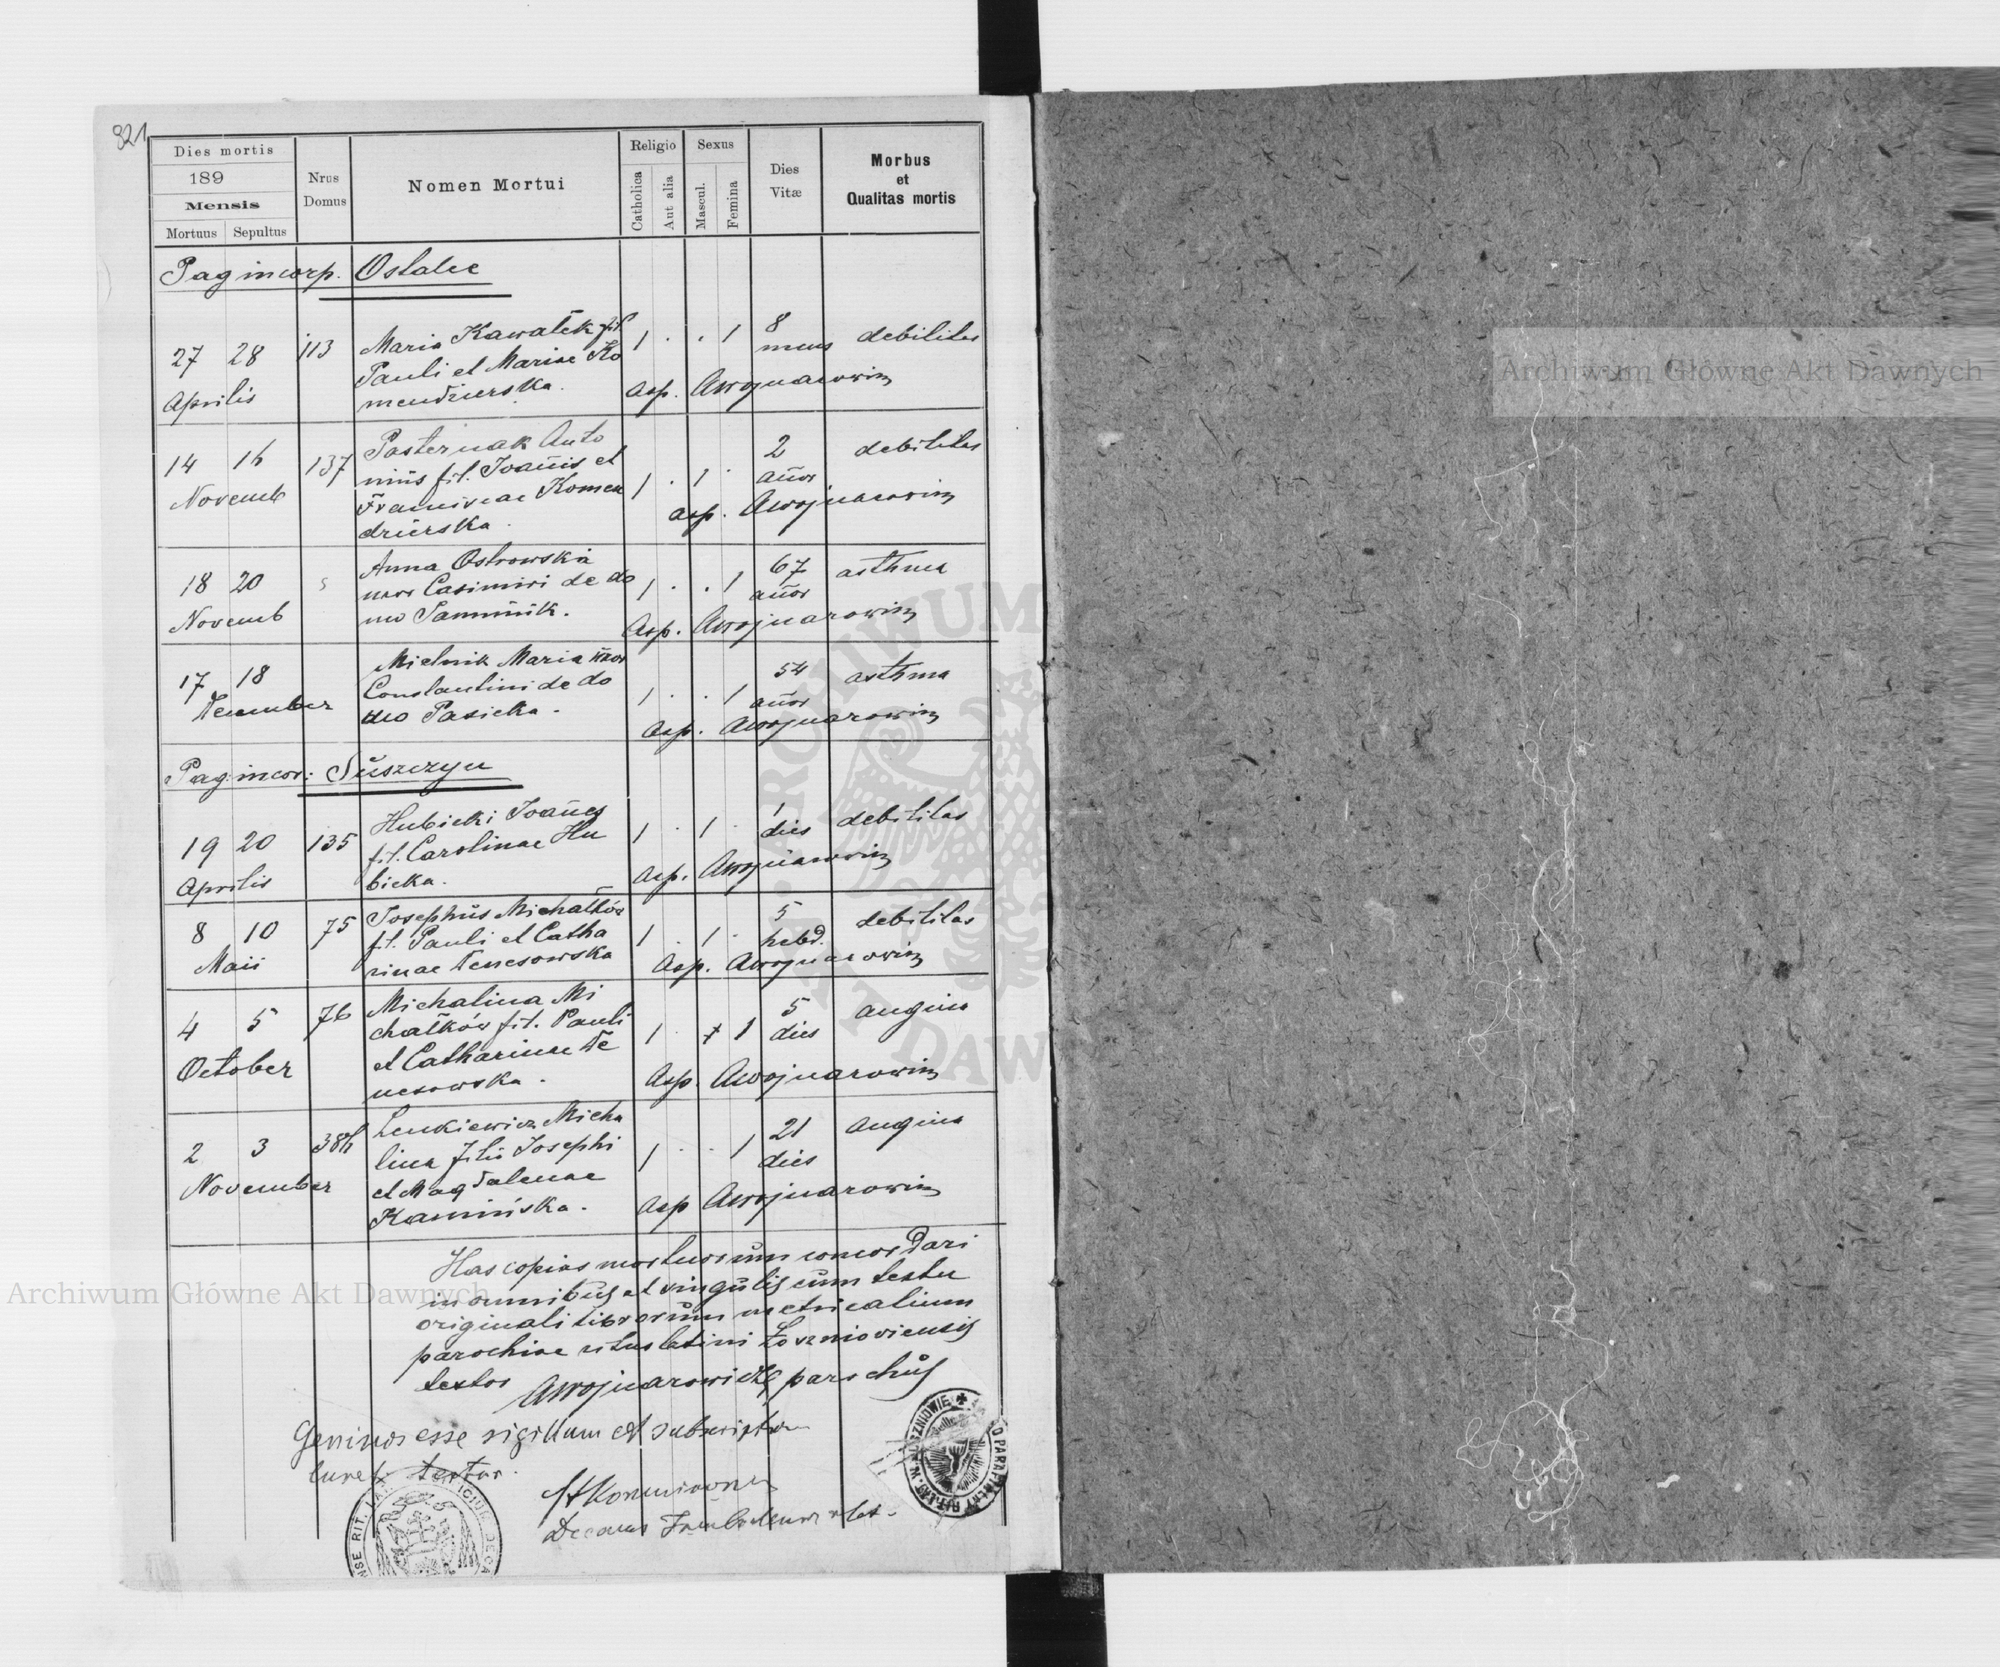 821
Dies mortis
189
Mensis
Mortuus Sepultus
Nrus
Domus
Nomen Mortui
Religio
Catholica
Aut alia
Sexus
Mascul.
Femina
Dies
Vitæ
Morbus
et
Qualitas mortis
Pag incorp. Ostalec
27 28 113 Maria Kawałek fil 1 . . 1 8 debilitas
Aprilis Pauli et Mariae Ko mens
mendzierska. asp. AWojnarowicz
14 16 137 Pasternak Anto 2 debilitas
Novemb nius fil. Joannis et 1 . 1 . añor
Franciscae Komen asp. AWojnarowicz
dzierska.
18 20 Anna Ostrowska 1 . . 1 67 asthma
Novemb uxor Casimiri de do añor
mo Asp. AWojnarowicz
17 18 Mielnik Maria uxor 1 . . 1 54 asthma
December Constantini de do añor
mo Pasieka. Asp. AWojnarowicz
Pag. incor: Suszczyn
19 20 135 Hubicki Joañes 1 . 1 . 1 debilitas
Aprilis fil. Carolinae Hu dies
bicka. Asp. AWojnarowicz
8 10 75 Josephus Michałków 1 . 1 . 5 debilitas
Maii fil. Pauli et Catha hebd.
rinae Denesowska Asp. AWojnarowicz
4 5 76 Michalina Mi 1 . 1 5 angina
October chałków fil. Pauli dies
et Catharinae De
nesowska. Asp. AWojnarowicz
2 3 386 Lenkiewicz Micha 1 . . 1 21 angina
November lina filia Josephi dies
et Magdalenae
Kamińska. Asp AWojnarowicz
Has copias mortuorum concordari
in omnibus et singulis cum textu
originali librorum metricalium
parochiae ritus latini Łosznioviensis
testor AWojnarowicz parochus
Genuinos esse sigillum et subscriptio
testor.
Decanus
Archiwum Główne Akt Dawnych
Archiwum Główne Akt Dawnych
ARCHIWUM
AKT DAWN